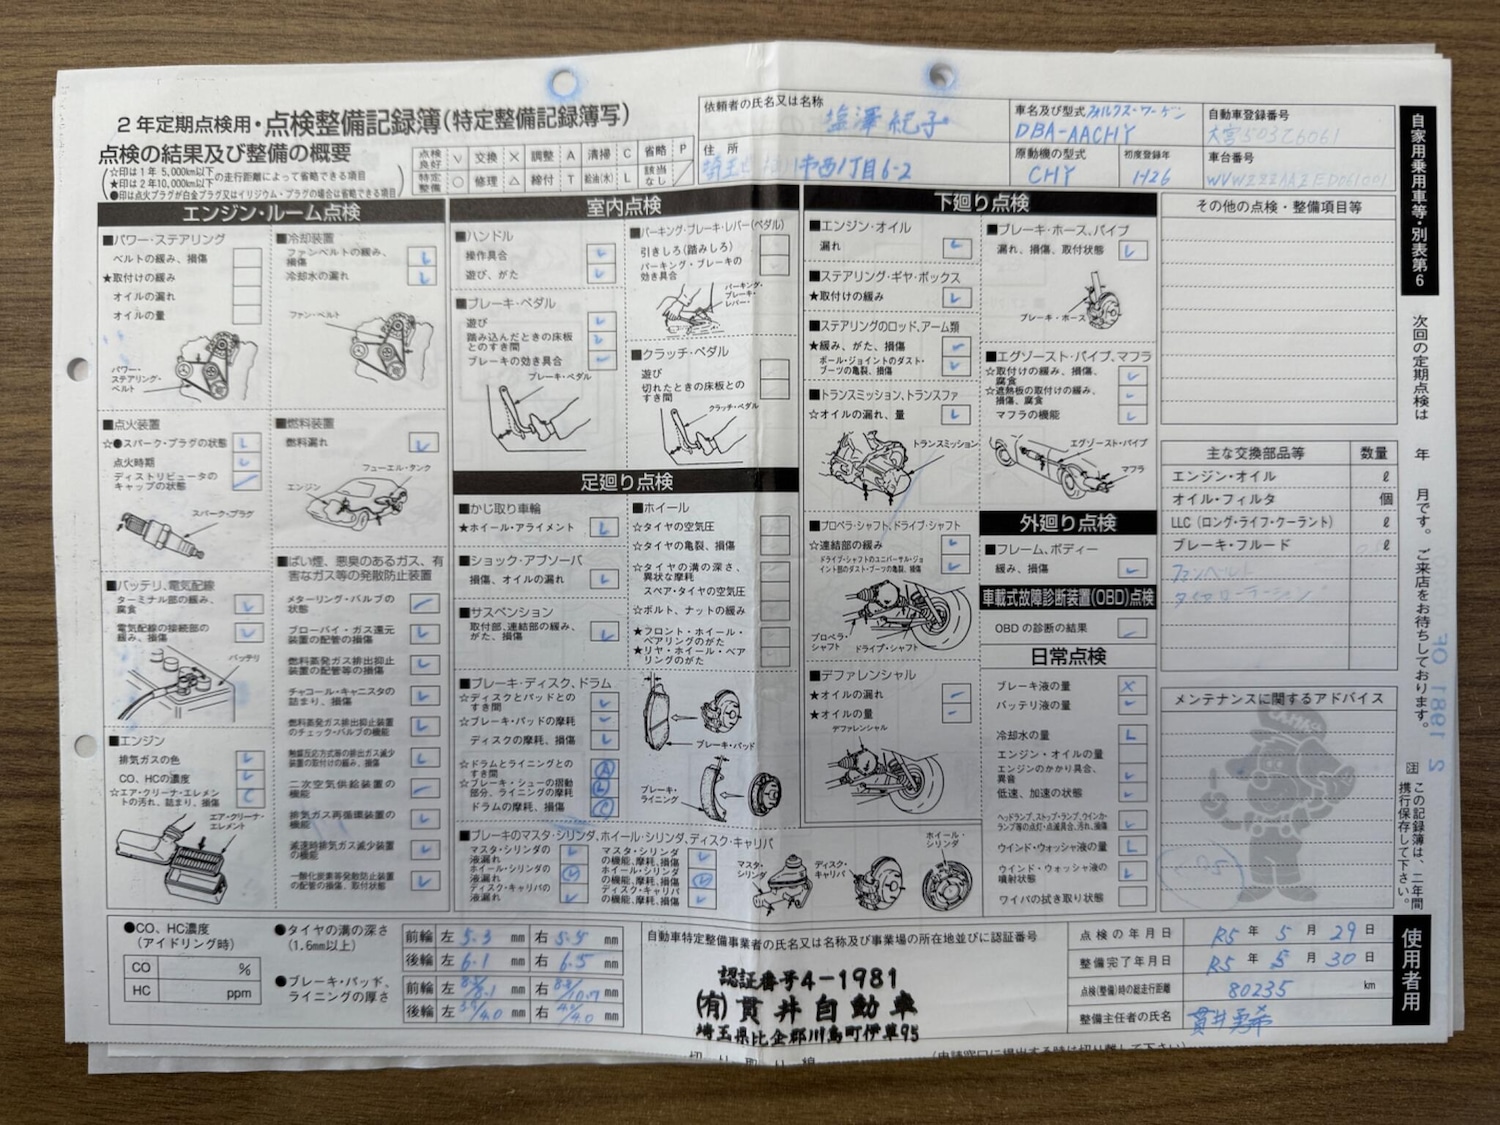 2年定期点検用・点検整備記録簿(特定整備記録簿写)
点検の結果及び整備の概要
☆印は1年 5,000km以下の走行距離によって省略できる項目
★印は2年10,000km以下の走行距離によって省略できる項目
●印は点火プラグが白金プラグ又はイリジウム・プラグの場合は省略できる項目
点検良好 V 交換 X 調整 A 清掃 C 省略 P
特定整備 ○ 修理 △ 締付 T 給油(水) L 該当なし /
依頼者の氏名又は名称
塩澤紀子
住所
市西1丁目6-2
車名及び型式 フォルクスワーゲン
DBA-AACHY
原動機の型式
CHY
初度登録年
H26
自動車登録番号
大宮503
車台番号
自家用乗用車等・別表第6
エンジン・ルーム点検
■パワー・ステアリング
ベルトの緩み、損傷
★取付けの緩み
オイルの漏れ
オイルの量
パワー・ステアリング・ベルト
■点火装置
☆●スパーク・プラグの状態
点火時期
ディストリビュータのキャップの状態
スパーク・プラグ
■バッテリ、電気配線
ターミナル部の緩み、腐食
電気配線の接続部の緩み、損傷
バッテリ
■エンジン
排気ガスの色
CO、HCの濃度
☆エア・クリーナ・エレメントの汚れ、詰まり、損傷
エア・クリーナ・エレメント
■冷却装置
ファンベルトの緩み、損傷
冷却水の漏れ
ファン・ベルト
■燃料装置
燃料漏れ
フューエル・タンク
エンジン
■ばい煙、悪臭のあるガス、有害なガス等の発散防止装置
メターリング・バルブの状態
ブローバイ・ガス還元装置の配管の損傷
燃料蒸発ガス排出抑止装置の配管等の損傷
チャコール・キャニスタの詰まり、損傷
燃料蒸発ガス排出抑止装置のチェック・バルブの機能
触媒反応方式等の排出ガス減少装置の取付けの緩み、損傷
二次空気供給装置の機能
排気ガス再循環装置の機能
減速時排気ガス減少装置の機能
一酸化炭素等発散防止装置の配管の損傷、取付状態
室内点検
■ハンドル
操作具合
遊び、がた
■ブレーキ・ペダル
遊び
踏み込んだときの床板とのすき間
ブレーキの効き具合
ブレーキ・ペダル
■パーキング・ブレーキ・レバー(ペダル)
引きしろ(踏みしろ)
パーキング・ブレーキの効き具合
パーキング・ブレーキ・レバー
■クラッチ・ペダル
遊び
切れたときの床板とのすき間
クラッチ・ペダル
足廻り点検
■かじ取り車輪
★ホイール・アライメント
■ショック・アブソーバ
損傷、オイルの漏れ
■サスペンション
取付部、連結部の緩み、がた、損傷
■ブレーキ・ディスク、ドラム
☆ディスクとパッドとのすき間
☆ブレーキ・パッドの摩耗
ディスクの摩耗、損傷
☆ドラムとライニングとのすき間
☆ブレーキ・シューの摺動部分、ライニングの摩耗
ドラムの摩耗、損傷
■ホイール
☆タイヤの空気圧
☆タイヤの亀裂、損傷
☆タイヤの溝の深さ、異状な摩耗
スペア・タイヤの空気圧
☆ボルト、ナットの緩み
★フロント・ホイール・ベアリングのがた
★リヤ・ホイール・ベアリングのがた
ブレーキ・パッド
ブレーキ・ライニング
■ブレーキのマスタ・シリンダ、ホイール・シリンダ、ディスク・キャリパ
マスタ・シリンダの液漏れ
ホイール・シリンダの液漏れ
ディスク・キャリパの液漏れ
マスタ・シリンダの機能、摩耗、損傷
ホイール・シリンダの機能、摩耗、損傷
ディスク・キャリパの機能、摩耗、損傷
マスタ・シリンダ
ディスク・キャリパ
ホイール・シリンダ
下廻り点検
■エンジン・オイル
漏れ
■ステアリング・ギヤ・ボックス
★取付けの緩み
■ステアリングのロッド、アーム類
★緩み、がた、損傷
ボール・ジョイントのダスト・ブーツの亀裂、損傷
■トランスミッション、トランスファ
☆オイルの漏れ、量
トランスミッション
■プロペラ・シャフト、ドライブ・シャフト
☆連結部の緩み
ドライブ・シャフトのユニバーサル・ジョイント部のダスト・ブーツの亀裂、損傷
プロペラ・シャフト
ドライブ・シャフト
■デファレンシャル
★オイルの漏れ
★オイルの量
デファレンシャル
■ブレーキ・ホース、パイプ
漏れ、損傷、取付状態
ブレーキ・ホース
■エグゾースト・パイプ、マフラ
☆取付けの緩み、損傷、腐食
☆遮熱板の取付けの緩み、損傷、腐食
マフラの機能
エグゾースト・パイプ
マフラ
外廻り点検
■フレーム、ボディー
緩み、損傷
車載式故障診断装置(OBD)点検
OBDの診断の結果
日常点検
ブレーキ液の量
バッテリ液の量
冷却水の量
エンジン・オイルの量
エンジンのかかり具合、異音
低速、加速の状態
ヘッドランプ、ストップ・ランプ、ウインカ・ランプ等の点灯・点滅具合、汚れ、損傷
ウインド・ウォッシャ液の量
ウインド・ウォッシャ液の噴射状態
ワイパの拭き取り状態
その他の点検・整備項目等
主な交換部品等 数量
エンジン・オイル ℓ
オイル・フィルタ 個
LLC(ロング・ライフ・クーラント) ℓ
ブレーキ・フルード ℓ
ファンベルト
タイヤローテーション
メンテナンスに関するアドバイス
次回の定期点検は 年 月です。ご来店をお待ちしております。
注 この記録簿は、二年間携行保存して下さい。
使用者用
●CO、HC濃度(アイドリング時)
CO %
HC ppm
●タイヤの溝の深さ(1.6mm以上)
前輪 左 5.3 mm 右 5.5 mm
後輪 左 6.1 mm 右 6.5 mm
●ブレーキ・パッド、ライニングの厚さ
前輪 左 mm 右 mm
後輪 左 4.0 mm 右 4.0 mm
自動車特定整備事業者の氏名又は名称及び事業場の所在地並びに認証番号
認証番号4-1981
(有)貫井自動車
埼玉県比企郡川島町伊草95
点検の年月日 R5年 5月 29日
整備完了年月日 R5年 5月 30日
点検(整備)時の総走行距離 80235 km
整備主任者の氏名 貫井
切り取り線